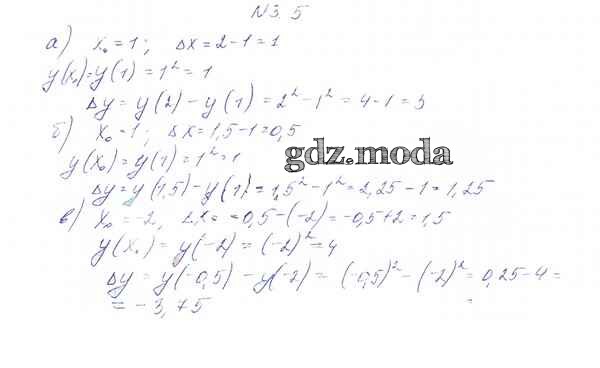 N 3.5
а) x₀ = 1; Δx = 2 - 1 = 1
y(x₀) = y(1) = 1² = 1
Δy = y(2) - y(1) = 2² - 1² = 4 - 1 = 3
б) x₀ = 1; Δx = 1,5 - 1 = 0,5
y(x₀) = y(1) = 1² = 1
gdz.moda
Δy = y(1,5) - y(1) = 1,5² - 1² = 2,25 - 1 = 1,25
в) x₀ = -2, Δx = -0,5 - (-2) = -0,5 + 2 = 1,5
y(x₀) = y(-2) = (-2)² = 4
Δy = y(-0,5) - y(-2) = (-0,5)² - (-2)² = 0,25 - 4 =
= -3,75